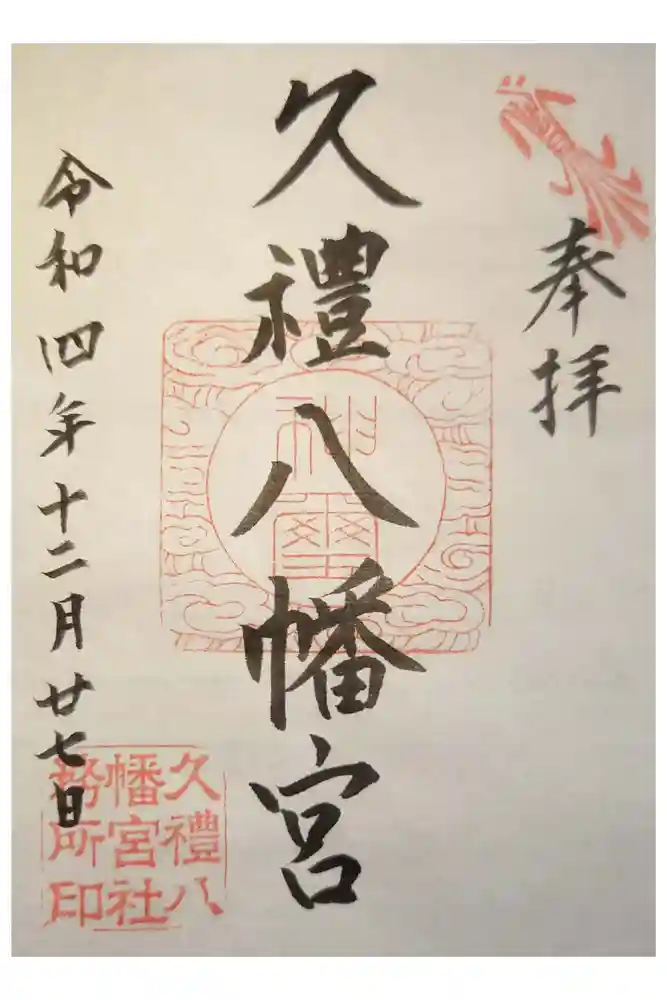 奉拝
久禮八幡宮
神璽
令和四年十二月廿七日
久禮八
幡宮社
務所印